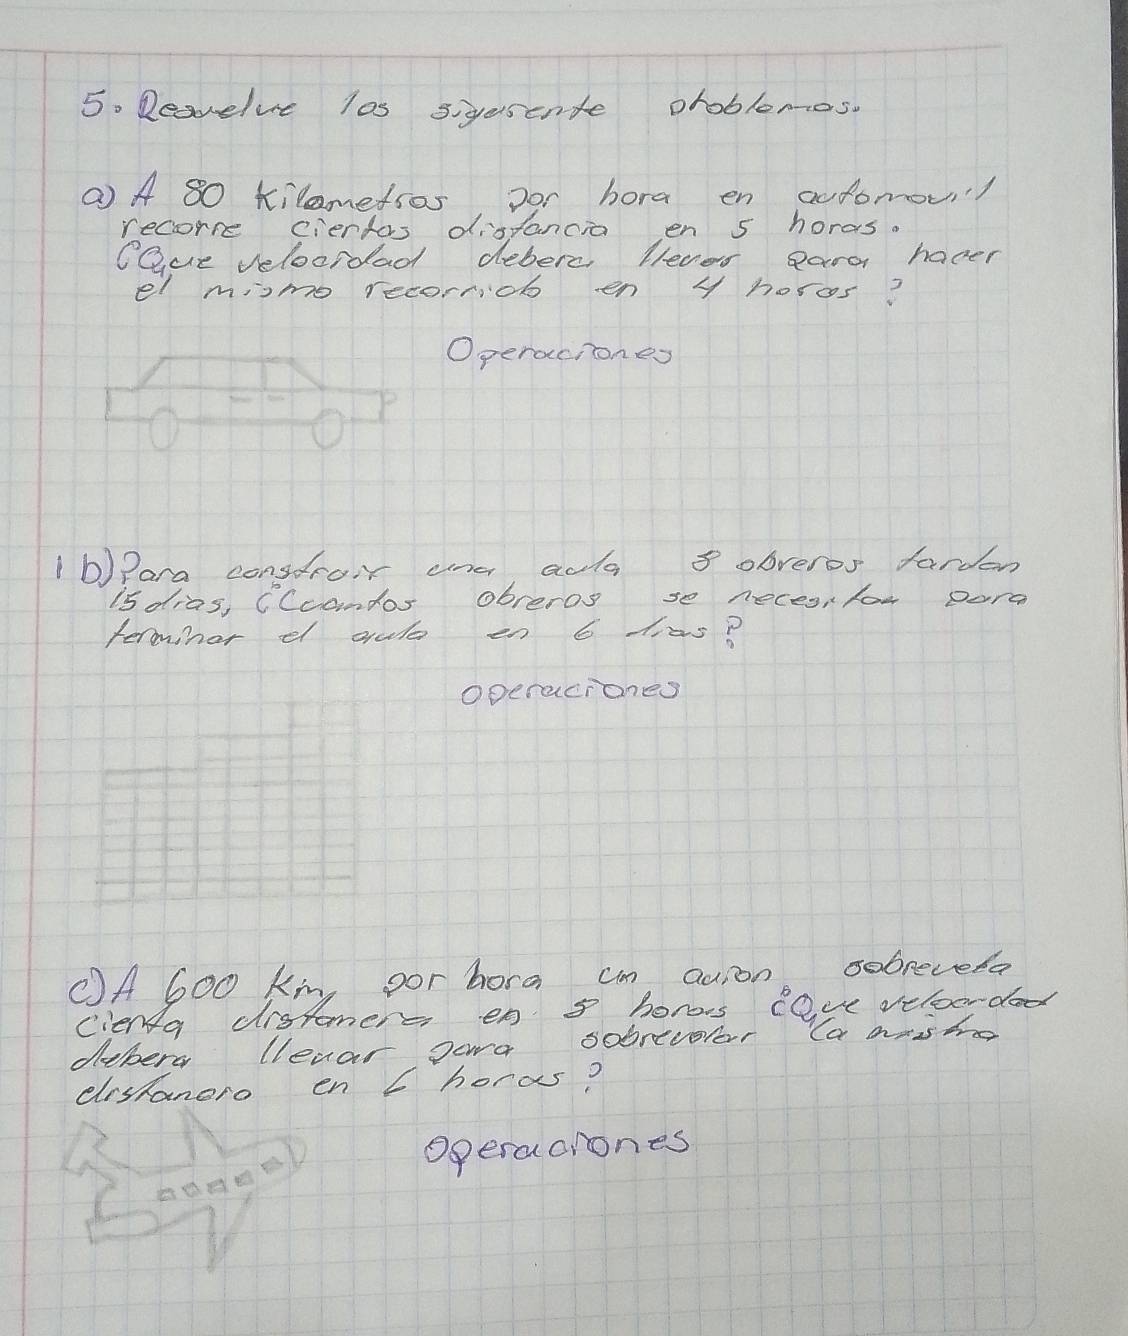 5. Resuelve los siguiente problemas.
a) A 80 Kilometros por hora en automovil
recorre ciertas distancia en 5 horas.
¿Que velocidad debera llevar para hacer
el mismo recorrido en 4 horas?
Operaciones
1 b) Para construir una aula 8 obreros tardan
15 dias, ¿Cuantos obreros se necesitan para
terminar el aula en 6 dias?
operaciones
c) A 600 Km por hora un avion sobrevela
cierta en 8 horas ¿Que velocidad
debera llevar para sobrevolar la misma
en 6 horas?
operaciones